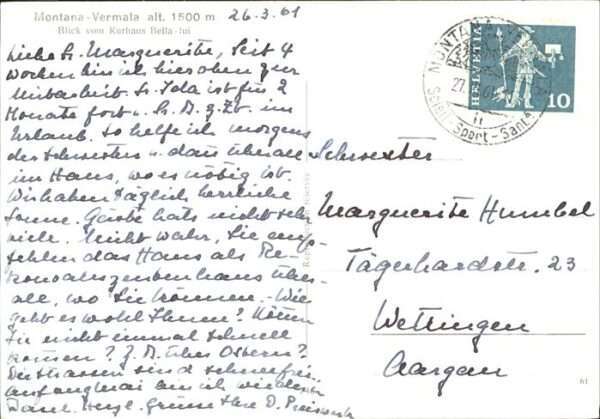 Montana-Vermala alt. 1500 m
Blick vom Kurhaus Bella-lui
26.3.61
Liebe Sr. Marguerite, Seit 4
Wochen bin ich hier oben zur
Mitarbeit. Sr. Iola ist für 2
Monate fort u. Sr. B. z. Zt. im
Urlaub. So helfe ich morgens
den Schwestern u. dann überall
im Haus, wo es nötig ist.
Wir haben täglich herrliche
Sonne. Gäste hats nicht sehr
viele. Nicht wahr, Sie emp-
fehlen das Haus als Re-
konvaleszentenhaus über-
all, wo Sie können. - Wie
geht es wohl Ihnen? Können
Sie nicht einmal schnell
kommen? Z. B. über Ostern?
Die Strassen sind schneefrei.
Anfang Mai bin ich wieder in
Basel. Herzl. Grüsse Ihre D.
HELVETIA
10
MONTANA
27.
Soleil - Sport - Santé
Schwester
Marguerite Humbel
Tägerhardstr. 23
Wettingen
Aargau
61